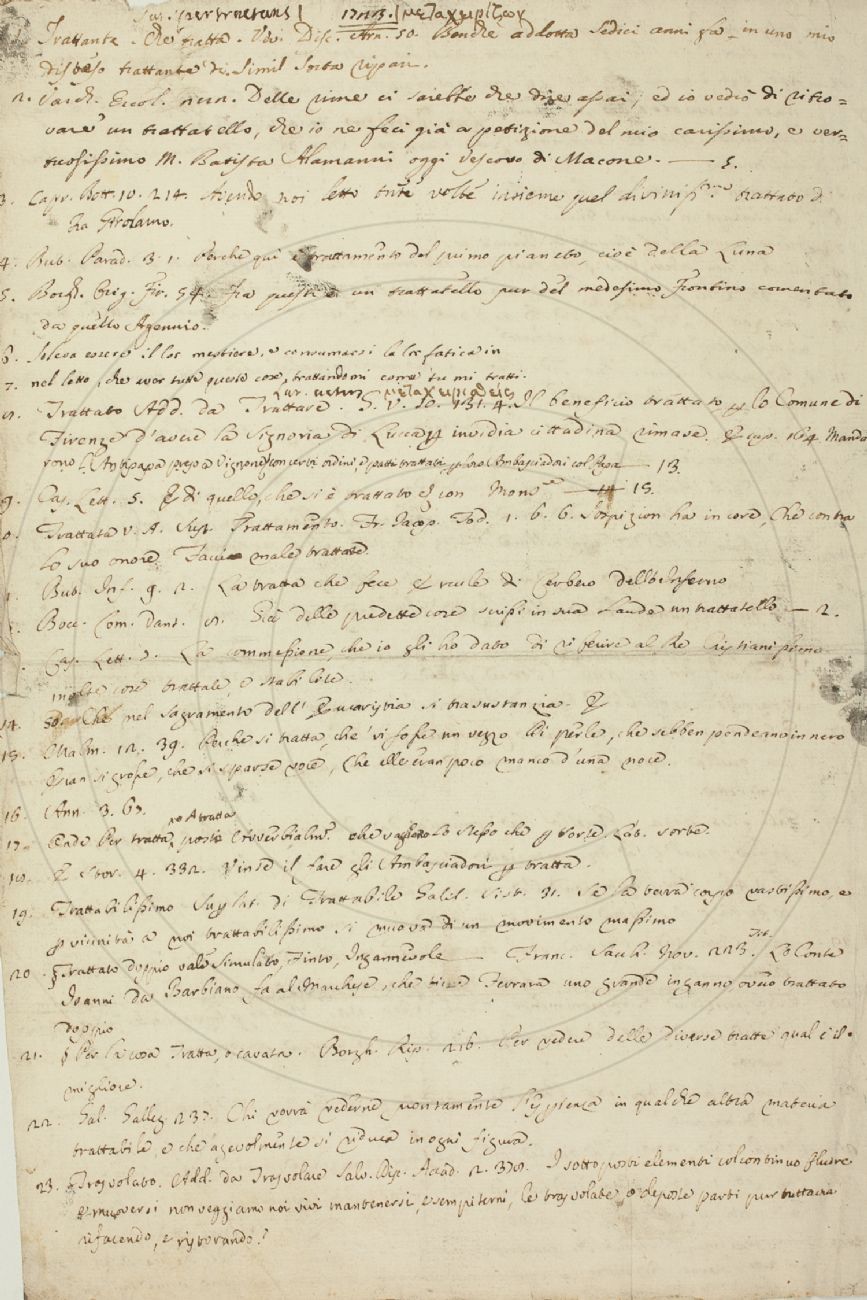 1713. μεταχειρίζων
Trattante. Che tratta. Udi. Disc. Ara. 50. Benche addotta sedici anni fa in uno mio
disteso trattante di simil sorta ripari.
2. Varch. Ercol. Delle rime ci sarebbe che dire assai; ed io vedrò di ritro=
vare un trattatello, che io ne feci già a petizione del mio carissimo, e ver=
tuosissimo M. Batista Alamanni oggi Vescovo di Macone. — 5.
3. Capr. Bott. 10. 214. Avendo noi letto tante volte insieme quel diviniss.mo trattato di
fra Girolamo.
4. But. Parad. 3. 1. Perche qui è trattamento del primo pianeto, cioè della Luna
5. Borgh. Orig. Fir. 54. Fra questi è un trattatello pur del medesimo Frontino comentato
da quello Agennio.
6. Soleva essere il lor mestiere, e consumarsi la lor fatica in
7. nel letto, che aver tutte queste cose, trattandomi come tu mi tratti.
Trattato Add. da Trattare. G. V. 10. 131. 4. Il beneficio trattato p lo Comune di
Firenze d'avere la Signoria di Lucca p invidia cittadina rimase. E cap. 164. Manda
rono l'Antipapa preso a Vignone con certi ordini, e patti trattati p loro Ambasciadori col Papa — 13.
9. Cas. Lett. 5. E di quello, che si è trattato con Mons.re — 15.
Trattata v. A. Sust. Trattamento. Fr. Jacop. Tod. 1. 6. 6. Sospizion ha in core, Che contra
lo suo onore Faccia male trattate.
But. Inf. 9. 2. La tratta che fece Ercule di Cerbero dell'Inferno
Bocc. Com. Dant. Già delle predette cose scripsi in sua laude un trattatello — 2.
Cas. Lett. La commessione, che io gli ho dato di riferire al Re Cristianissimo
molte cose trattate, e stabilite.
14. Che nel sagramento dell'Eucaristia si trasustanzia. E
15. Malm. 12. 39. Perche si tratta, che vi fosse un vezzo Di perle, che sebben pendeano in nero
Eran si grosse, che si sparse voce, Che elle eran poco manco d'una noce.
16. Ann. 3. 67.
17. Per tratta, no A tratta posto Avverbialm.e che vagliono lo stesso che p sorte. Lat. sorte.
18. E Stor. 4. 332. Vinse il fare gli Ambasciadori p tratta.
19. Trattabilissimo Suplat. di Trattabile Galil. Sist. 31. Se la terra corpo vastissimo, e
p vicinità a noi trattabilissimo si muova di un movimento massimo
20. § Trattato doppio vale Simulato, Finto, Ingannevole — Franc. Sacch. Nov. 223. Tit. Lo Conte
Joanni da Barbiano fa al Marchese, che tiene Ferrara uno grande inganno ovvero trattato
doppio
21. § Per la cosa Tratta, o cavata. Borgh. Rip. 216. Per vedere delle diverse tratte qual è il
migliore.
22. Gal. Galleg. 237. Chi vorrà vederne prontamente l'esperienza in qualche altra materia
trattabile, e che agevolmente si riduca in ogni figura.
23. Trasvolato. Add. da Trasvolare Salv. Disc. Accad. 2. 378. I sottoposti elementi col continuo flusso
e muoversi non veggiamo noi vivi mantenersi, e sempiterni, le trasvolate, e deposte parti pur tuttavia
rifacendo, e ristorando?